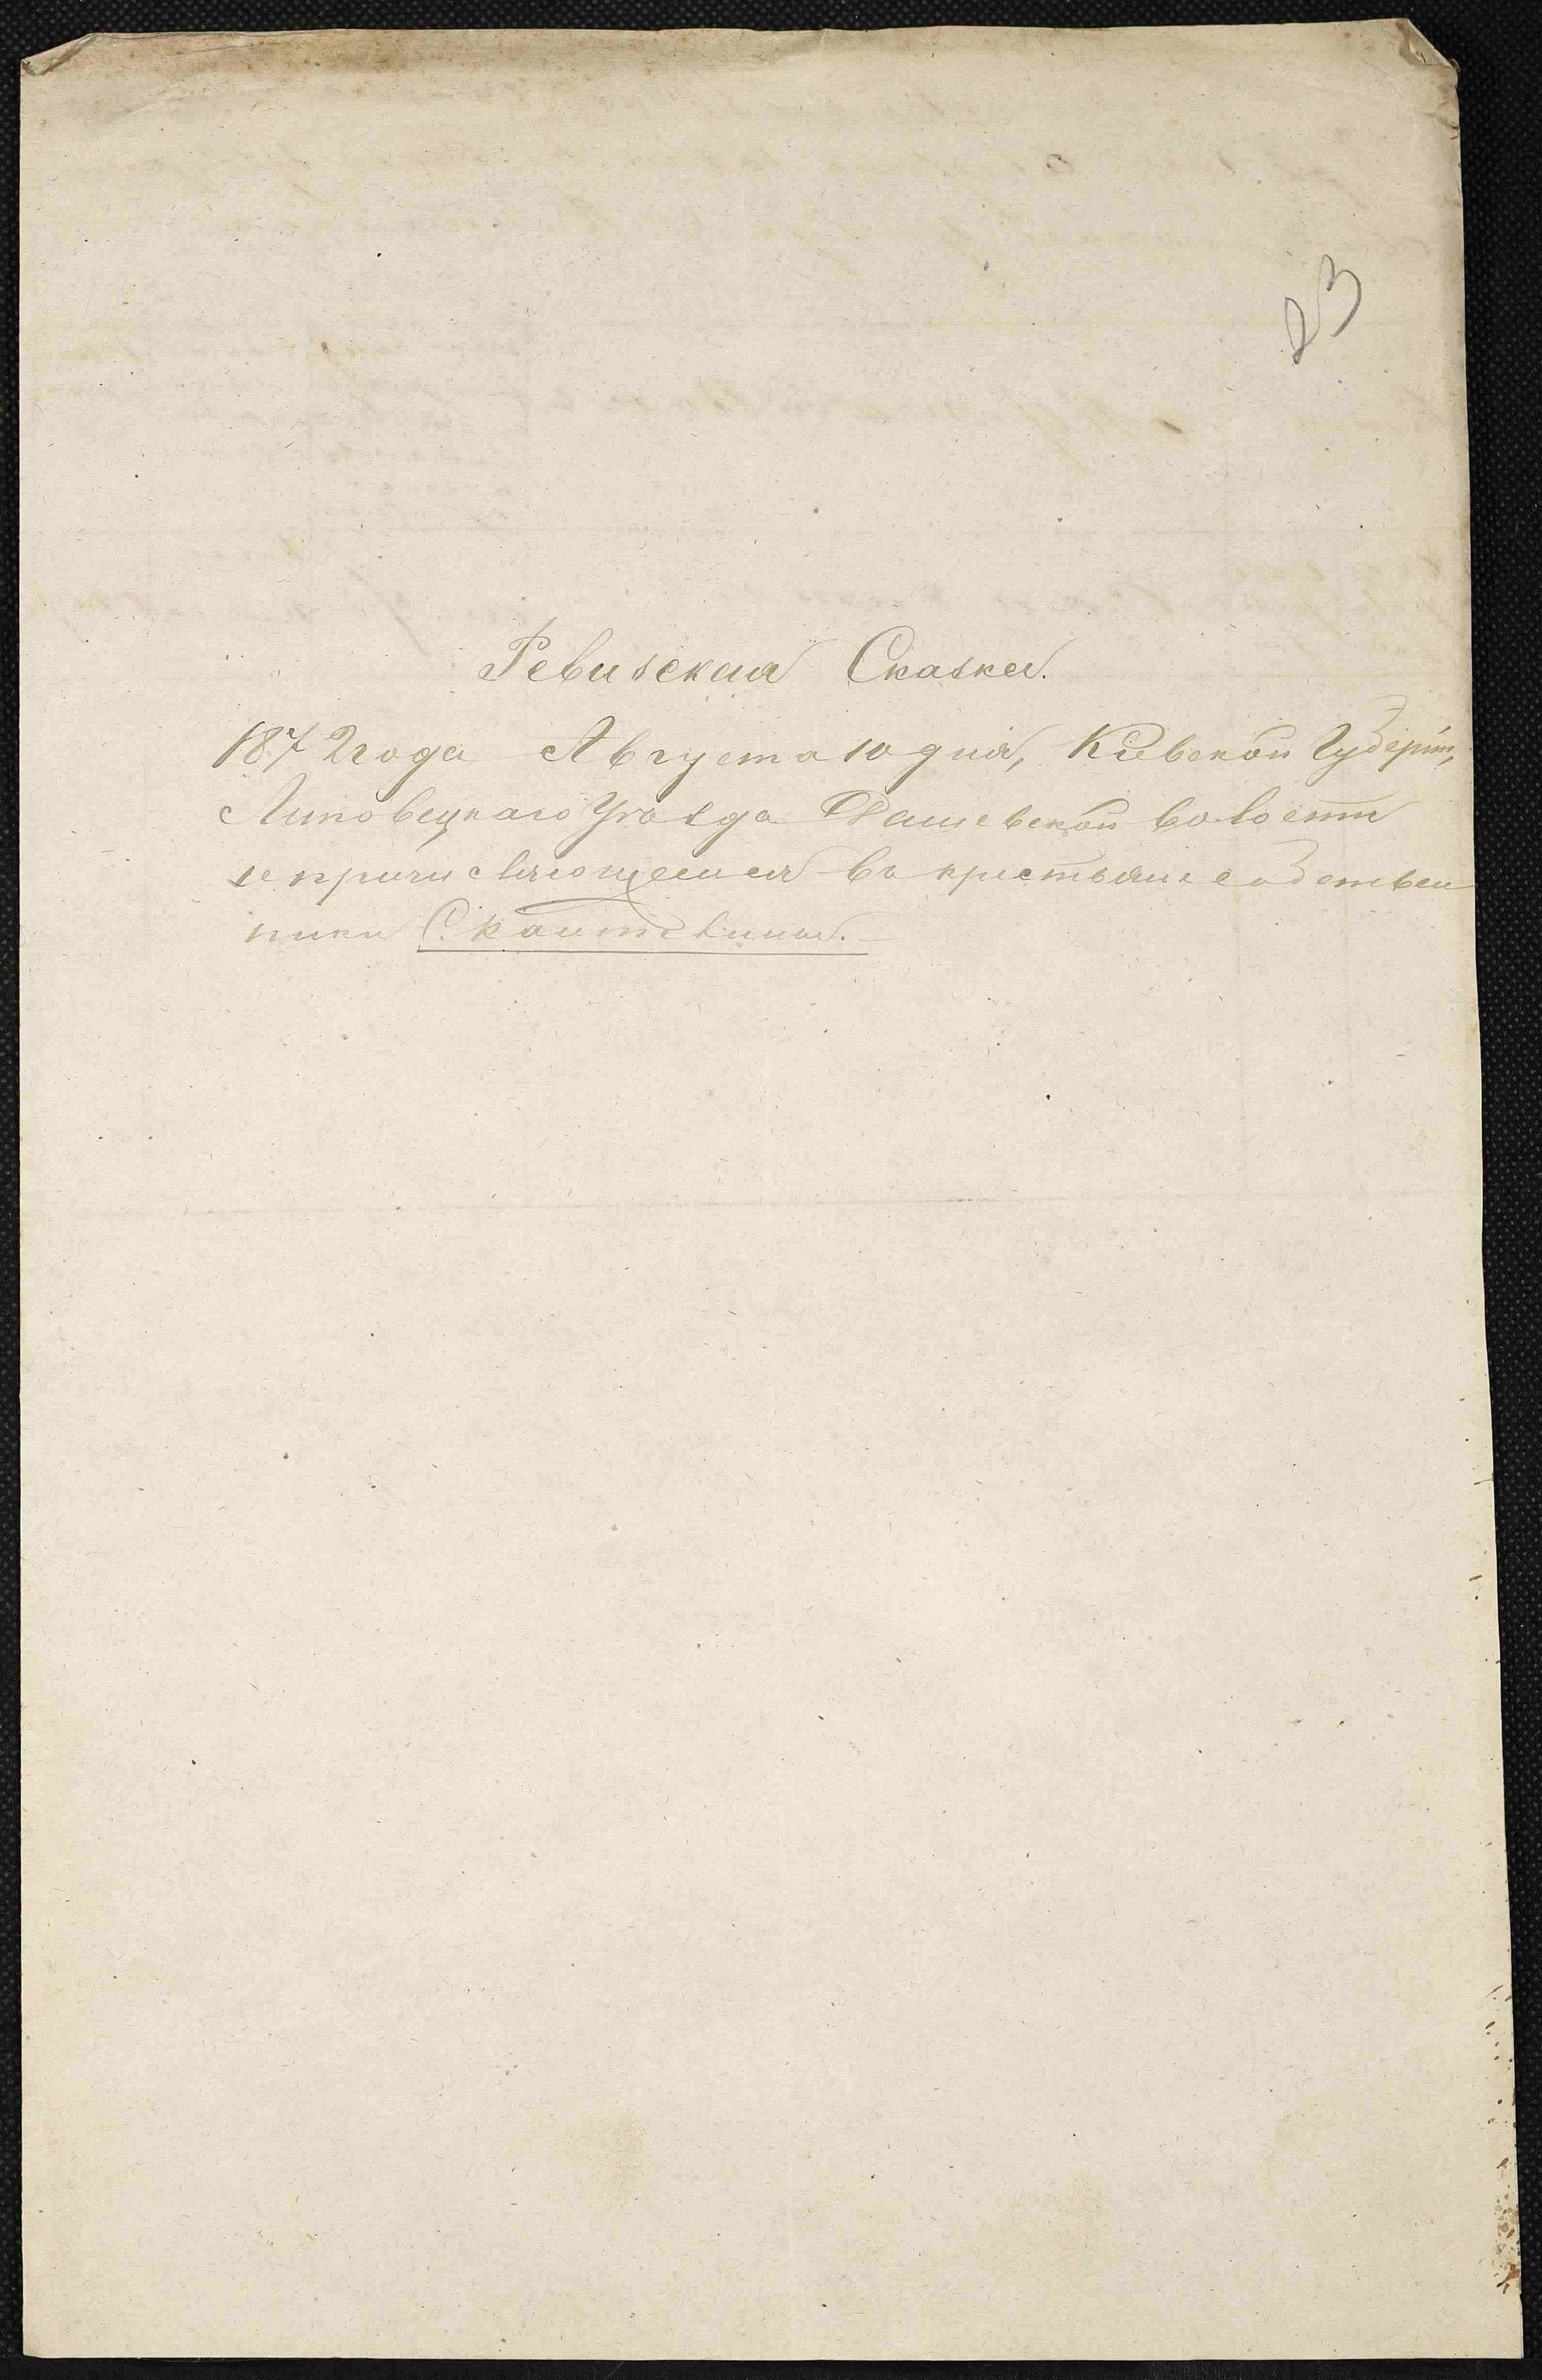 23
Ревизская Сказка.
1872 года Августа 10 дня, Кіевской Губерніи,
Липовецкаго Уѣзда Дашевской волости
о причисляющемся въ крестьяне собствен
ники